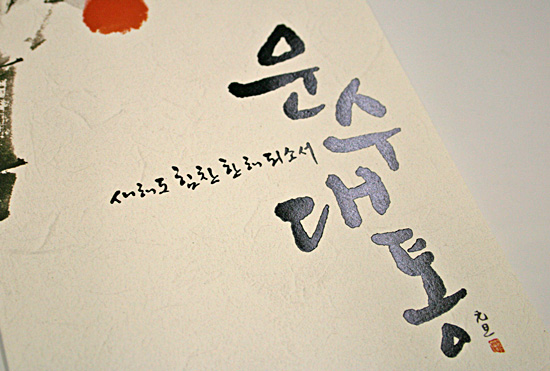 운수대통
새해도 힘찬 한해 되소서
元旦